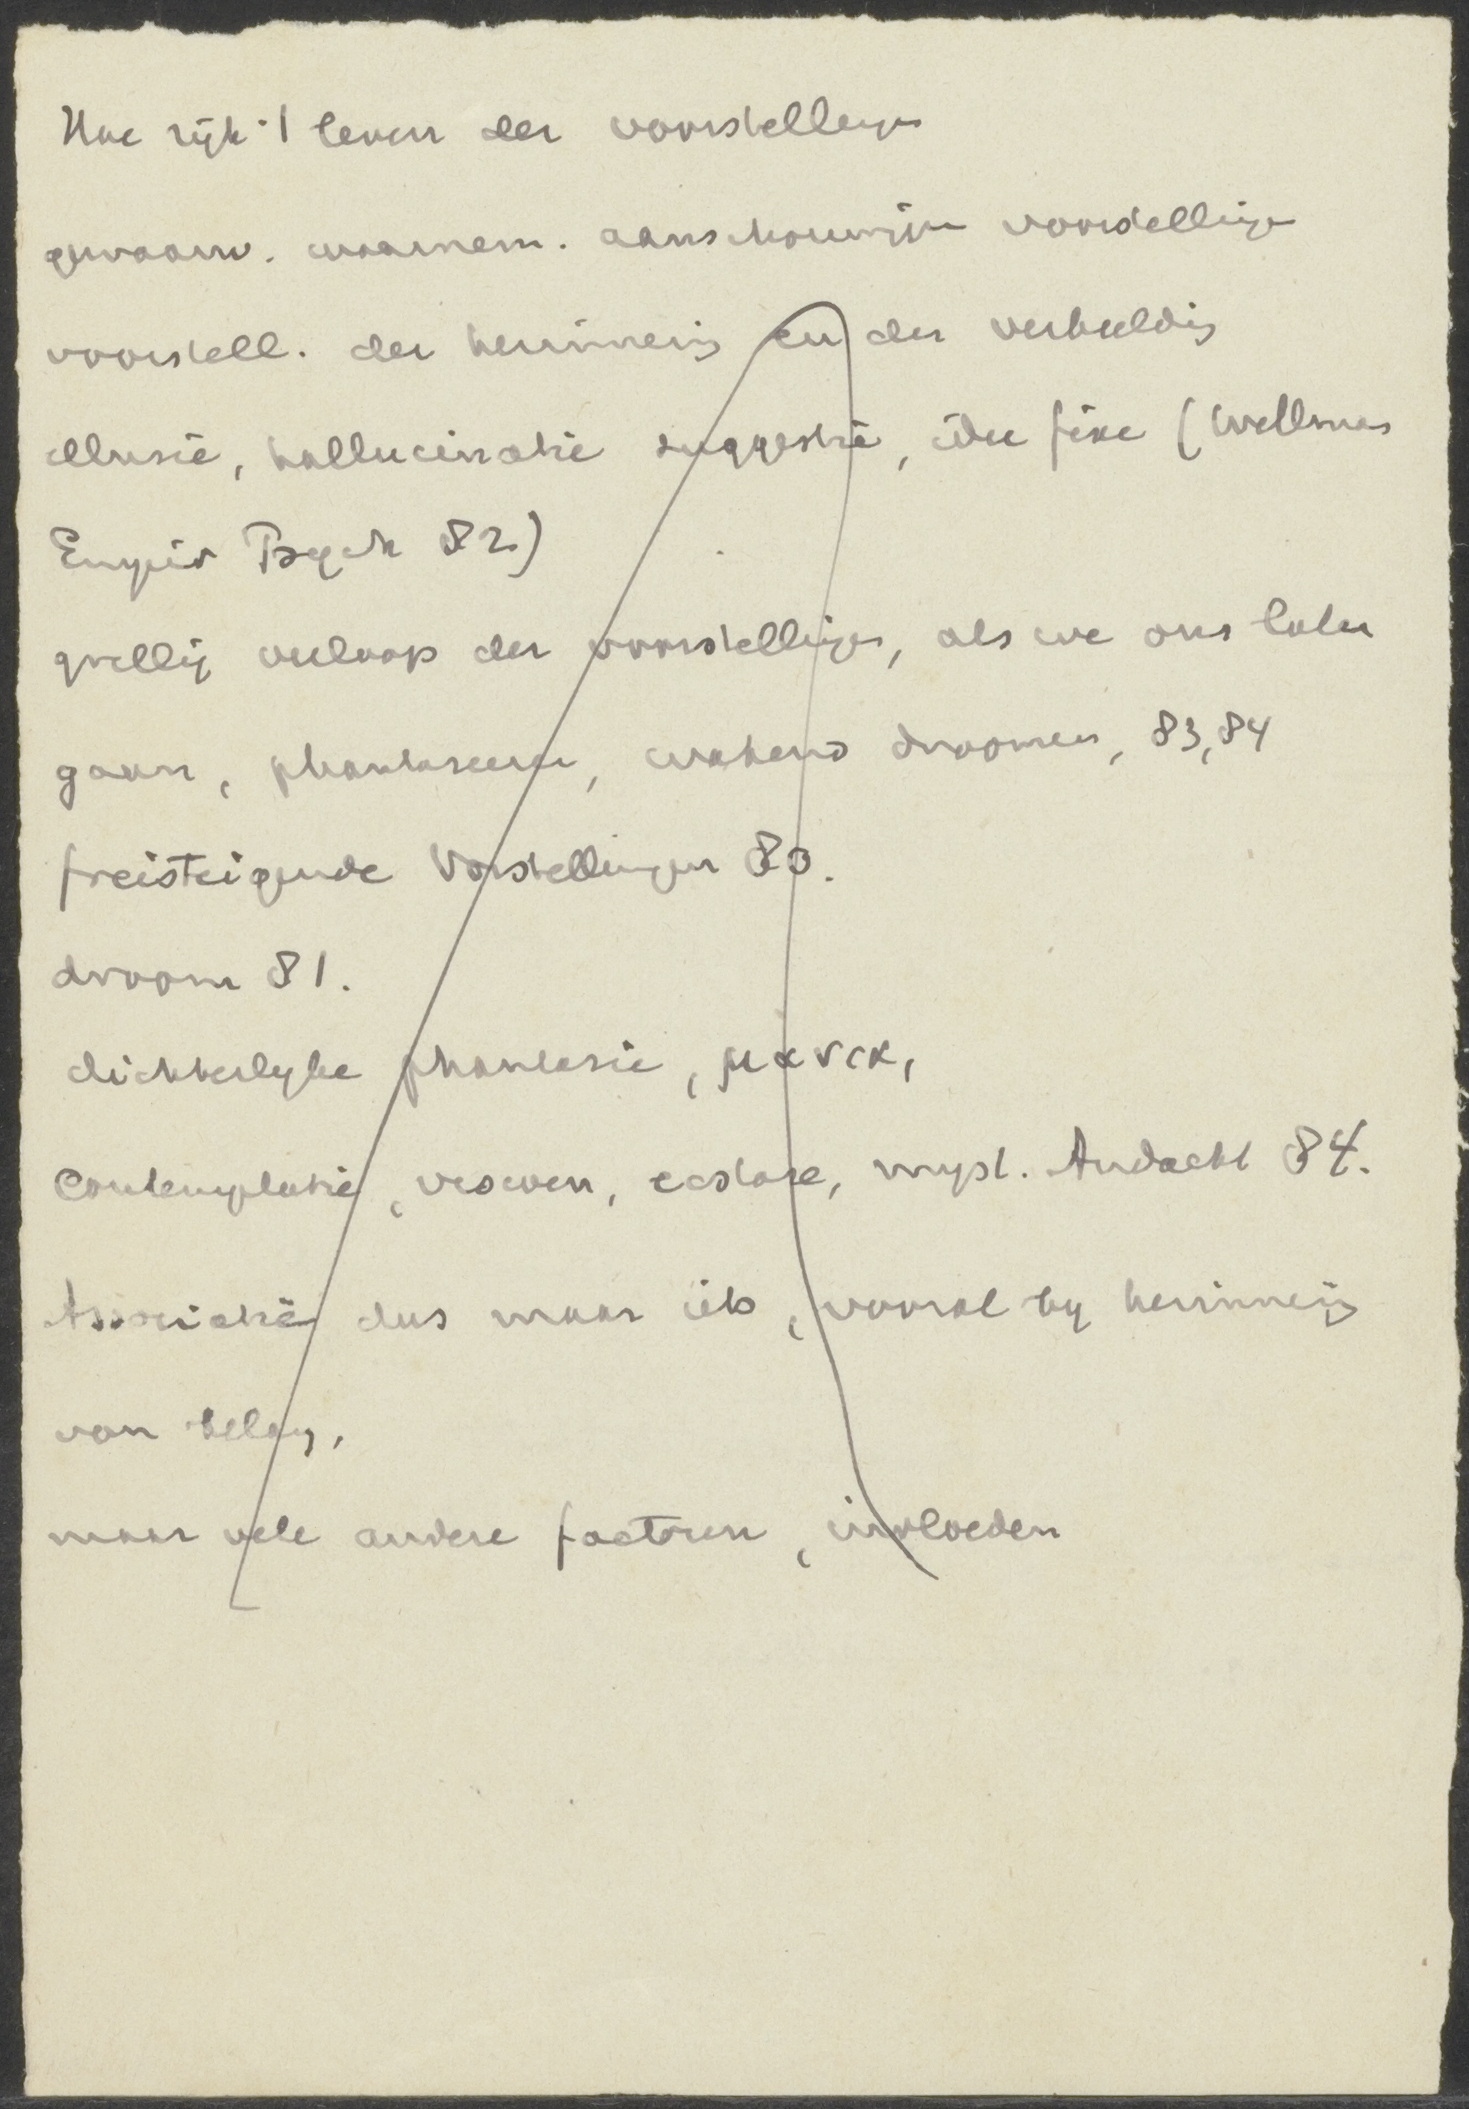 Hoe rijk 't leven der voorstellingen
gewaarw. waarnem. aanschouwijn voorstellingen
voorstell. der herinnering en der verbeelding
illusie, hallucinatie suggestie, idee fixe (Wellmer
Empir Psych 82)
grillig verloop der voorstellingen, als we ons laten
gaan, phantaseeren, wakend droomen, 83,84
freisteigende Vorstellungen 80.
droom 81.
dichterlijke phantasie, μανια,
Contemplatie, visioen, ecstase, myst. Andacht 84.
Associatie dus maar iets, vooral by herinnering
van belang,
maar vele andere factoren, invloeden